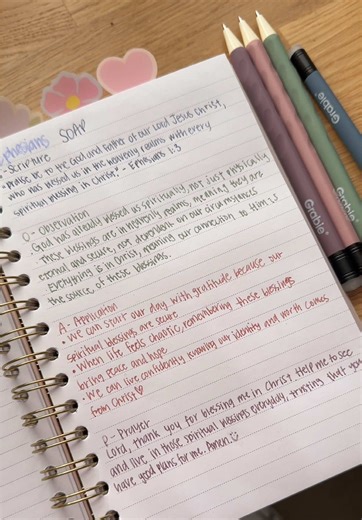 Ephesians SOAP
S - Scripture
"Praise be to the God and Father of our Lord Jesus Christ,
who has blessed us in the heavenly realms with every
spiritual blessing in Christ." - Ephesians 1:3
O - Observation
• God has already blessed us spiritually, not just physically
• These blessings are in heavenly realms, meaning they are
eternal and secure, not dependent on our circumstances
• Everything is in Christ, meaning our connection to Him is
the source of these blessings.
A - Application
• We can start our day with gratitude because our
spiritual blessings are secure
• When life feels chaotic, remembering these blessings
bring peace and hope
• We can live confidently knowing our identity and worth comes
from Christ♡
P - Prayer
Lord, thank you for blessing me in Christ. Help me to see
and live in those spiritual blessings everyday, trusting that you
have good plans for me. Amen.
Grable
Grable
Grable
Grable